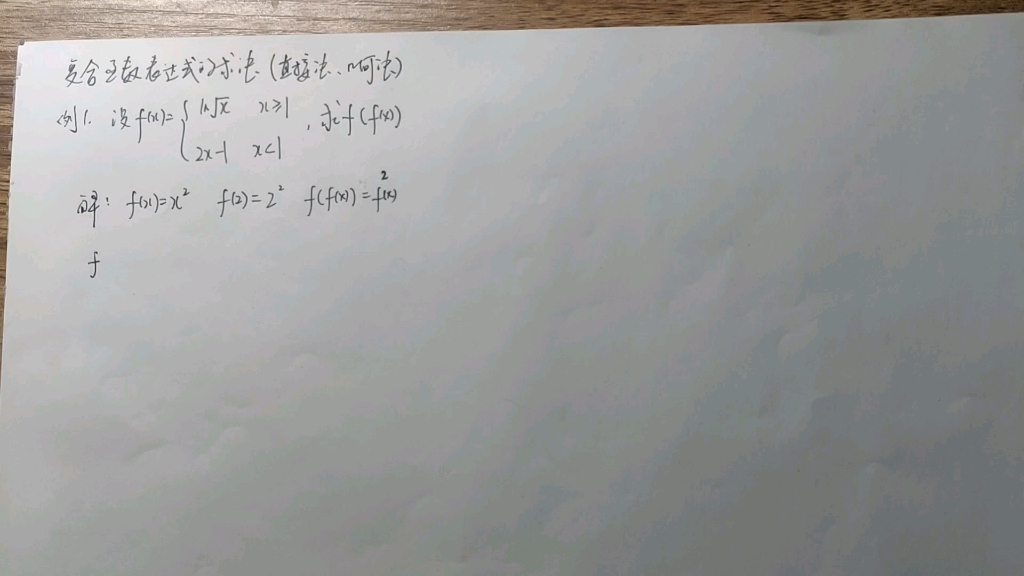 复合函数表达式的求法(直接法、几何法)
例1. 设f(x)={ln√x x≥1
2x-1 x<1 , 求f(f(x))
解: f(x)=x² f(2)=2² f(f(x))=f²(x)
f